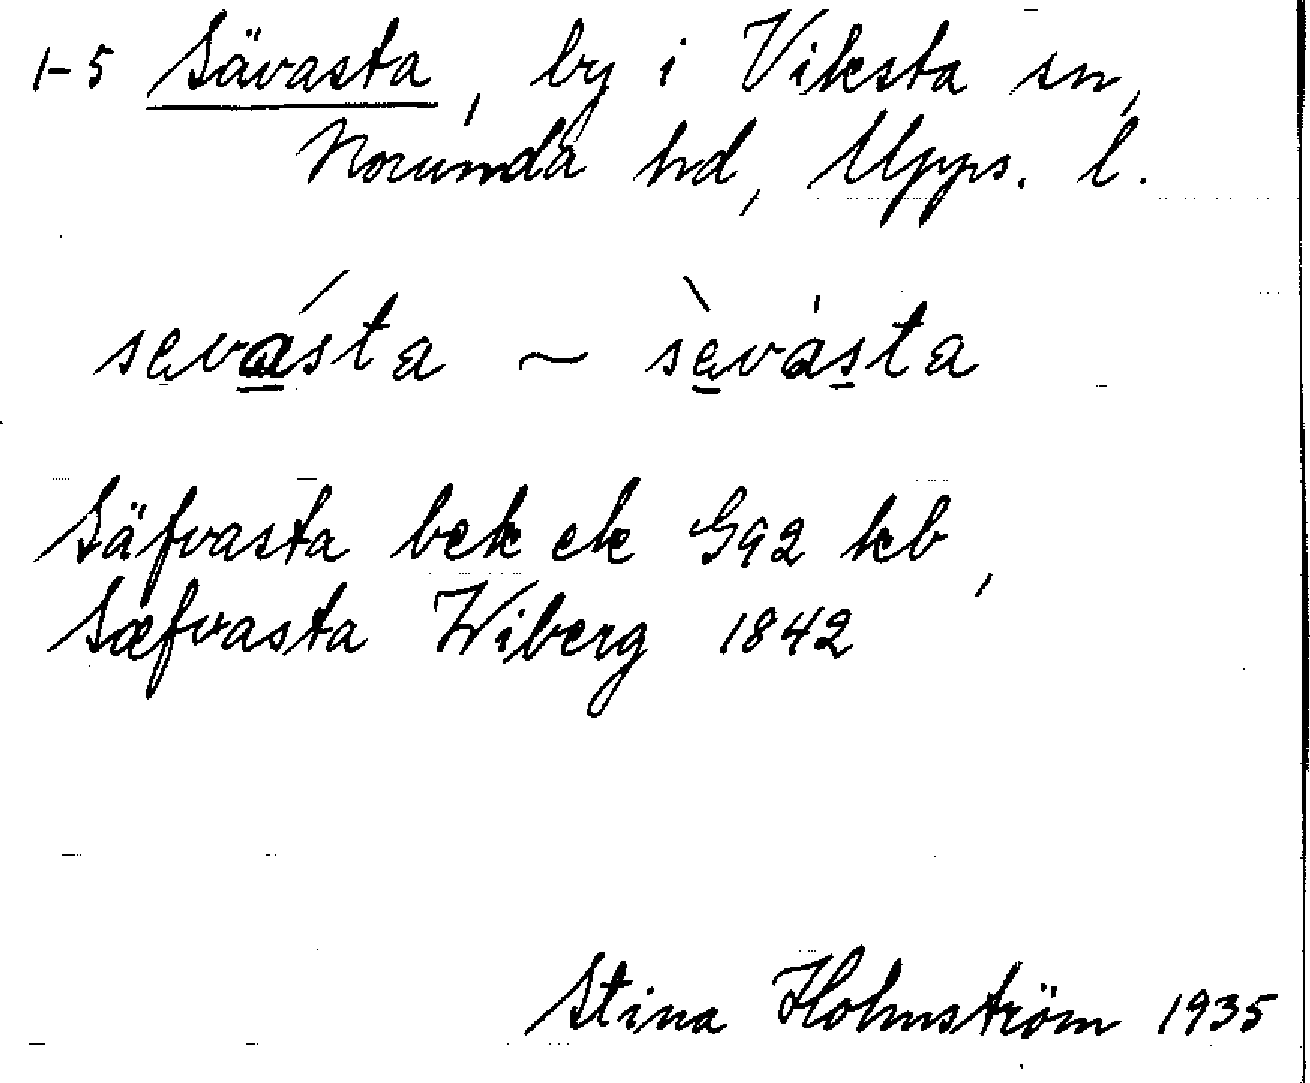 1-5 Sävasta, by i Viksta sn,
Norunda hd, Upps. l.
sevásta ~ sèvásta
Säfvasta bek ek G92 kb,
Sæfvasta Wiberg 1842
Stina Holmström 1935